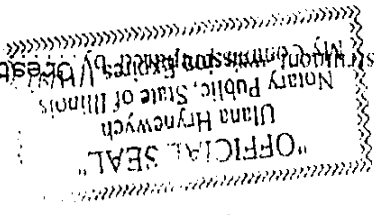 "OFFICIAL SEAL"
Ulana Hrynewych
Notary Public, State of Illinois
My Commission Expires